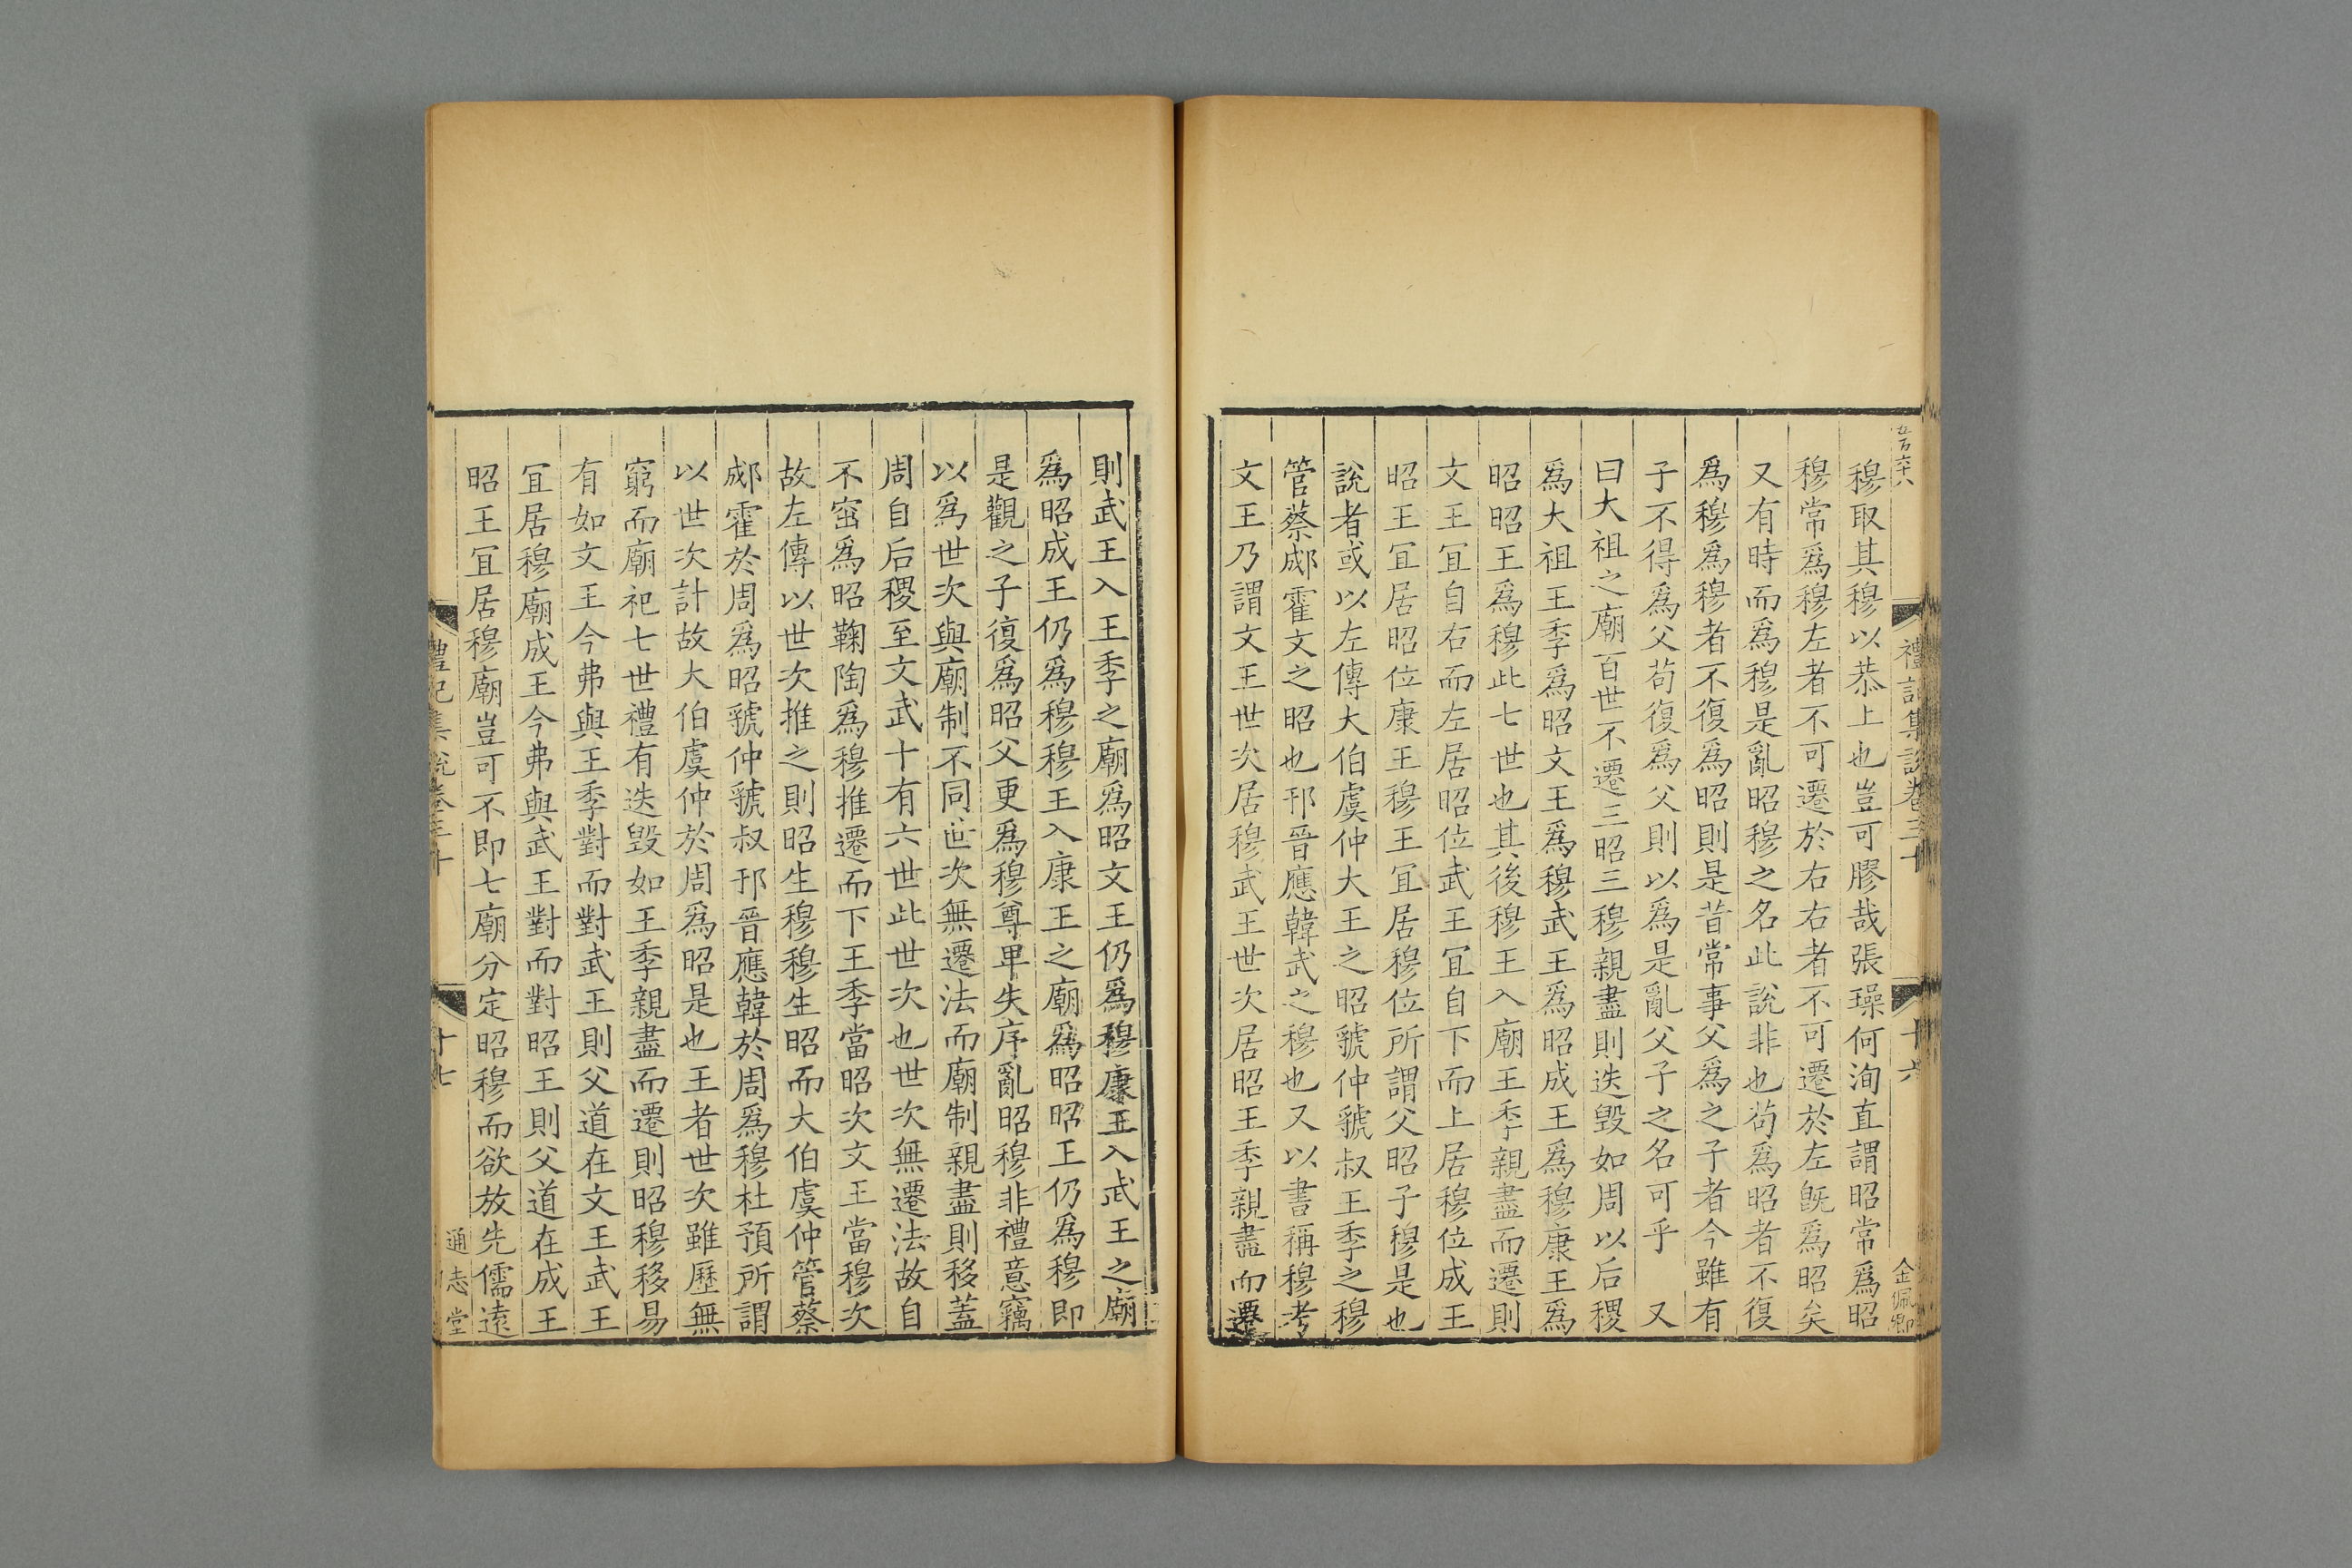 五百六十八
禮記集說卷三十
十六
金佩卿
穆取其穆以恭上也豈可膠哉張璪何洵直謂昭常爲昭
穆常爲穆左者不可遷於右右者不可遷於左旣爲昭矣
又有時而爲穆是亂昭穆之名此說非也苟爲昭者不復
爲穆爲穆者不復爲昭則是昔常事父爲之子者今雖有
子不得爲父苟復爲父則以爲是亂父子之名可乎 又
曰大祖之廟百世不遷三昭三穆親盡則迭毀如周以后稷
爲大祖王季爲昭文王爲穆武王爲昭成王爲穆康王爲
昭昭王爲穆此七世也其後穆王入廟王季親盡而遷則
文王宜自右而左居昭位武王宜自下而上居穆位成王
昭王宜居昭位康王穆王宜居穆位所謂父昭子穆是也
說者或以左傳大伯虞仲大王之昭虢仲虢叔王季之穆
管蔡郕霍文之昭也邘晉應韓武之穆也又以書稱穆考
文王乃謂文王世次居穆武王世次居昭王季親盡而遷
則武王入王季之廟爲昭文王仍爲穆康王入武王之廟
爲昭成王仍爲穆穆王入康王之廟爲昭昭王仍爲穆即
是觀之子復爲昭父更爲穆尊卑失序亂昭穆非禮意竊
以爲世次與廟制不同世次無遷法而廟制親盡則移蓋
周自后稷至文武十有六世此世次也世次無遷法故自
不窋爲昭鞠陶爲穆推遷而下王季當昭次文王當穆次
故左傳以世次推之則昭生穆穆生昭而大伯虞仲管蔡
郕霍於周爲昭虢仲虢叔邘晉應韓於周爲穆杜預所謂
以世次計故大伯虞仲於周爲昭是也王者世次雖歷無
窮而廟祀七世禮有迭毀如王季親盡而遷則昭穆移易
有如文王今弗與王季對而對武王則父道在文王武王
宜居穆廟成王今弗與武王對而對昭王則父道在成王
昭王宜居穆廟豈可不即七廟分定昭穆而欲放先儒遠
禮記集說卷三十
十七
通志堂